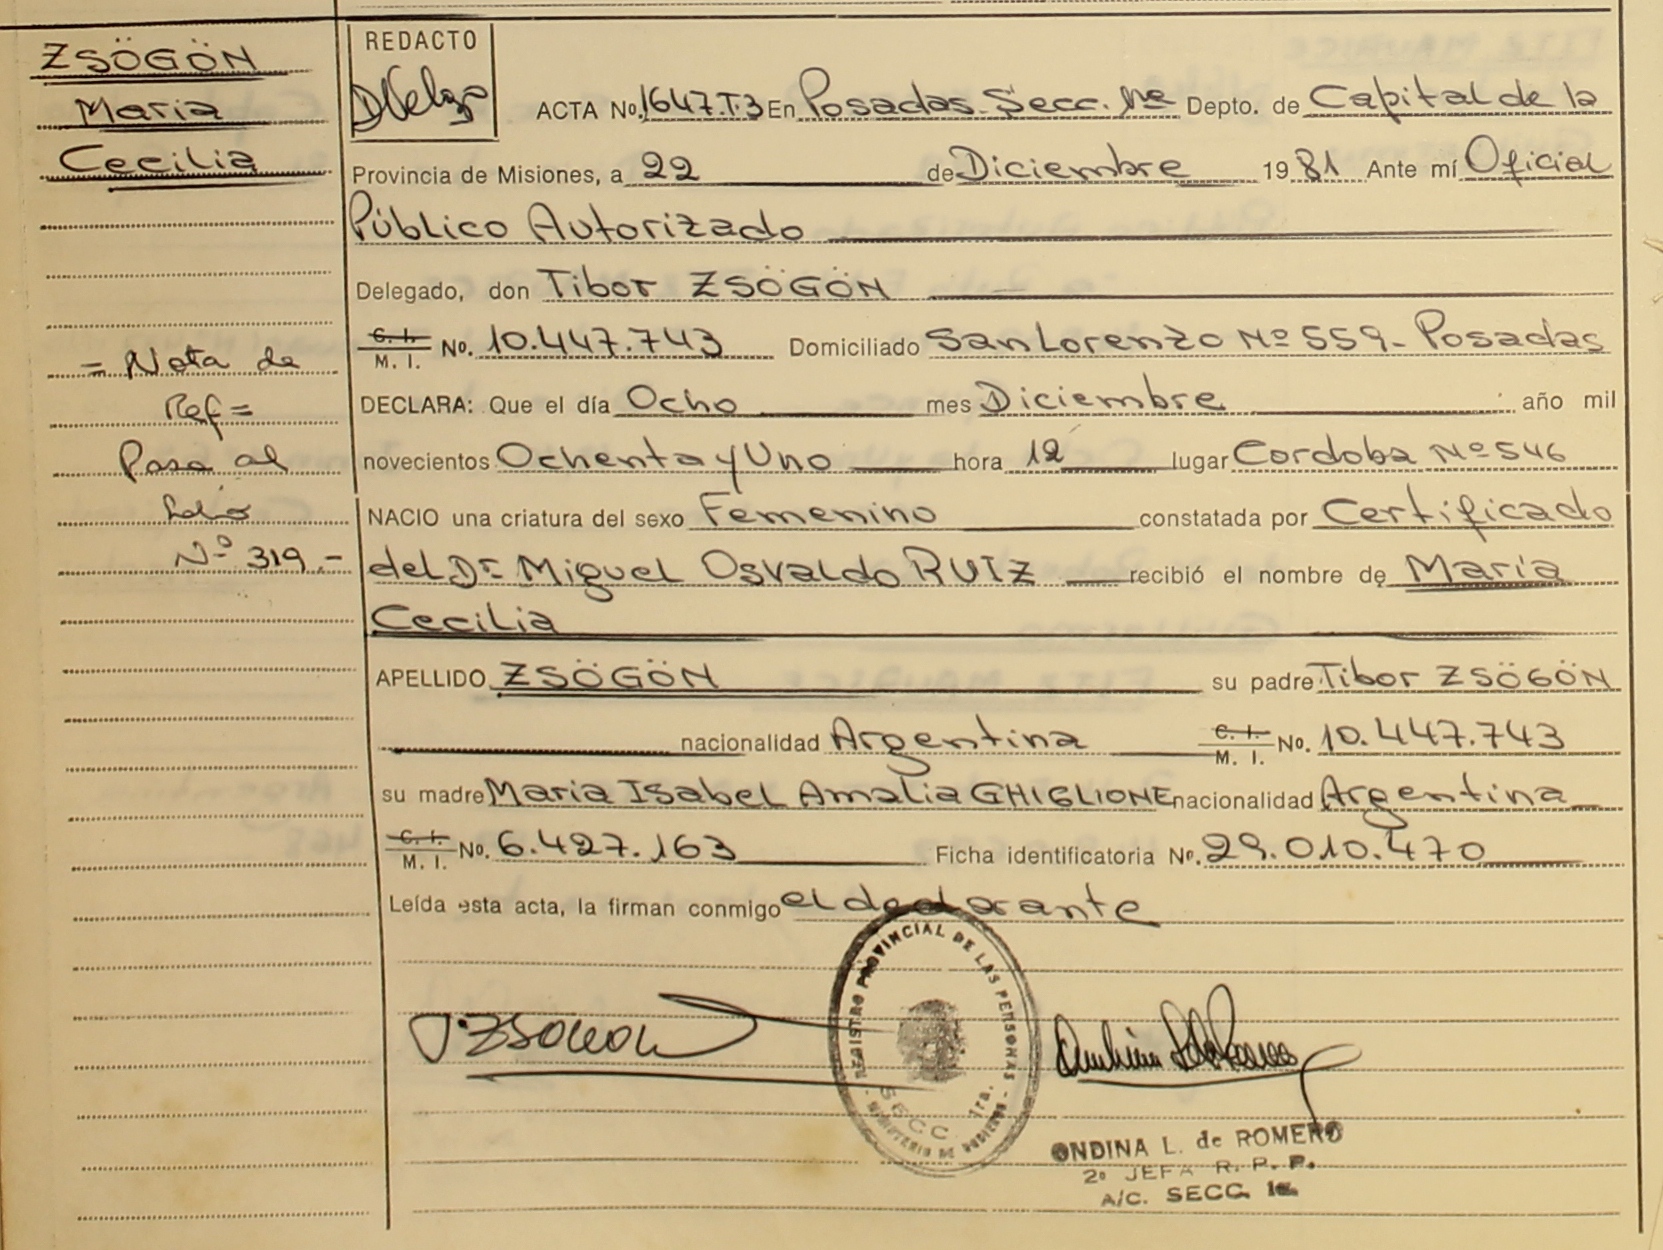 ZSÖGÖN
Maria
Cecilia
= Nota de
Ref =
Pasa al
folio
Nº 319.-
REDACTO
ACTA No. 1647.T.3 En Posadas Secc. 1ra Depto. de Capital de la
Provincia de Misiones, a 22 de Diciembre 19 81 Ante mí Oficial
Público Autorizado
Delegado, don Tibor ZSÖGÖN
C. I.
M. I. No. 10.447.743 Domiciliado San Lorenzo Nº 559- Posadas
DECLARA: Que el día Ocho mes Diciembre año mil
novecientos Ochenta y Uno hora 12 lugar Cordoba Nº 546
NACIO una criatura del sexo Femenino constatada por Certificado
del Dr. Miguel Osvaldo RUIZ recibió el nombre de Maria
Cecilia
APELLIDO ZSÖGÖN su padre Tibor ZSÖGÖN
nacionalidad Argentina C. I.
M. I. No. 10.447.743
su madre Maria Isabel Amalia GHIGLIONE nacionalidad Argentina
C. I.
M. I. No. 6.427.163 Ficha identificatoria No. 29.010.470
Leída esta acta, la firman conmigo el declarante
REGISTRO PROVINCIAL DE LAS PERSONAS
SECC. 1ra.
- MINISTERIO DE GOBIERNO -
ONDINA L. de ROMERO
2º JEFA R. P. P.
A/C. SECC. 1a.